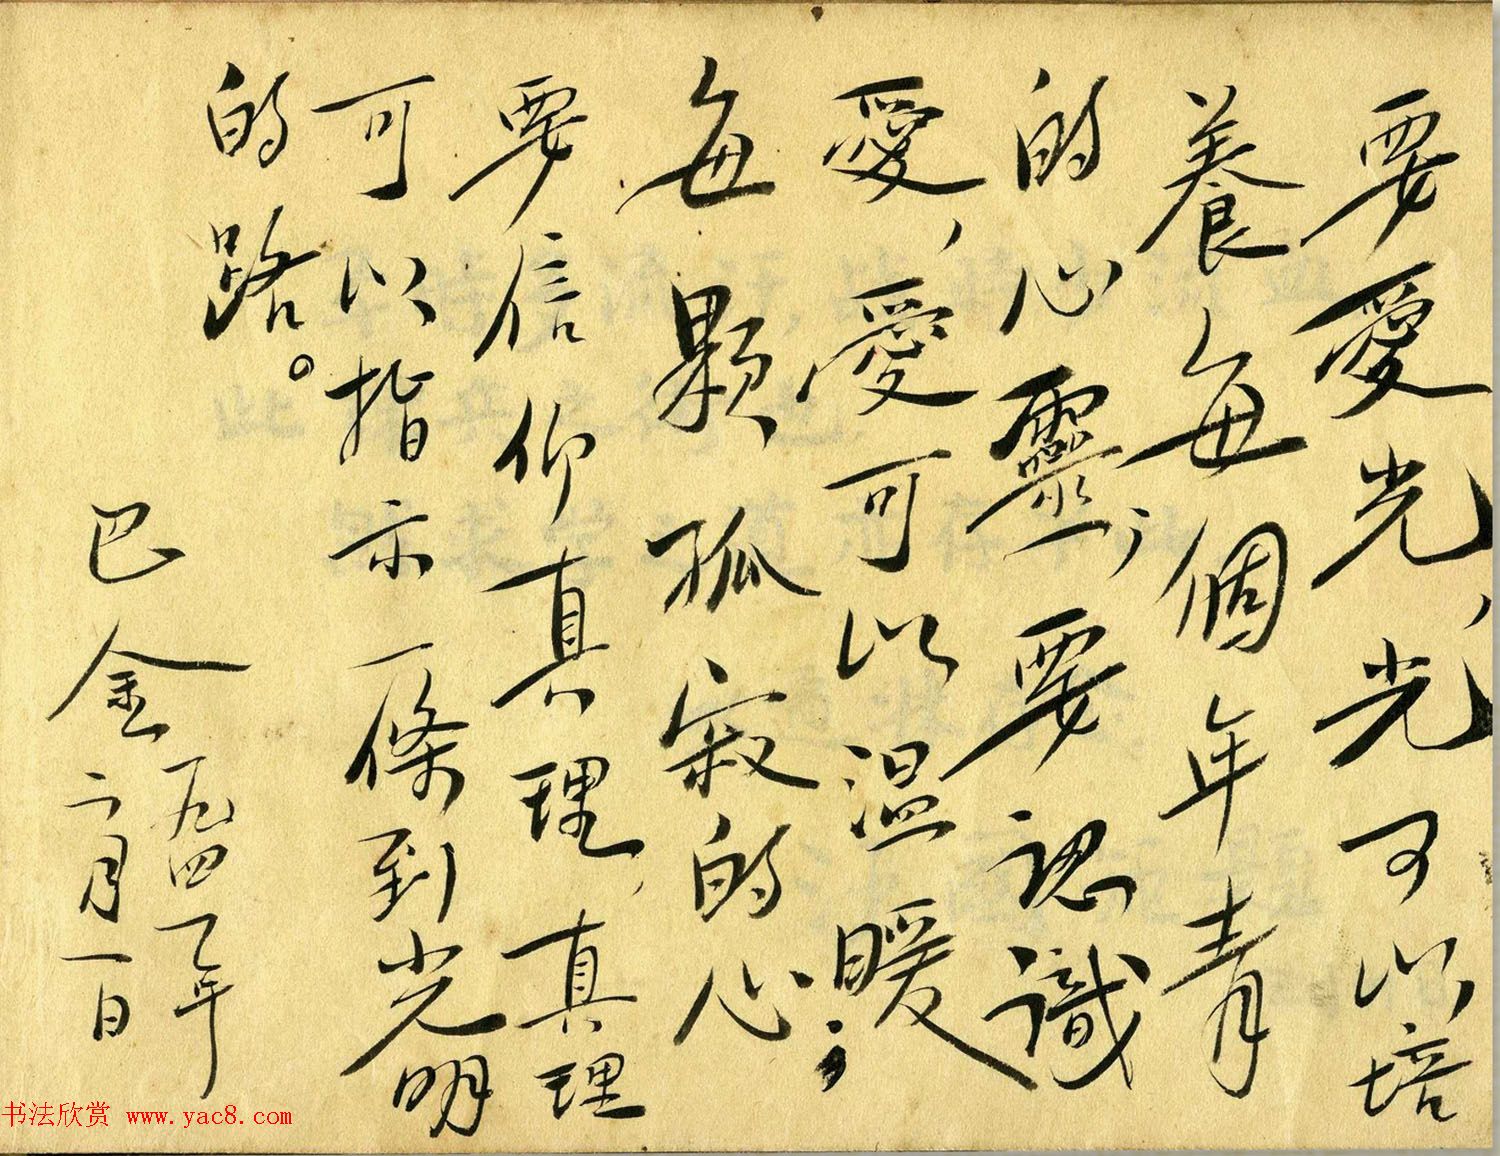 要愛光,光可以培
養每個年青
的心靈;要認識
愛,愛可以温暖;
每顆孤寂的心
要信仰真理,真理
可以指示一條到光明
的路。
巴金
一九四七年
二月一日
书法欣赏 www.yac8.com